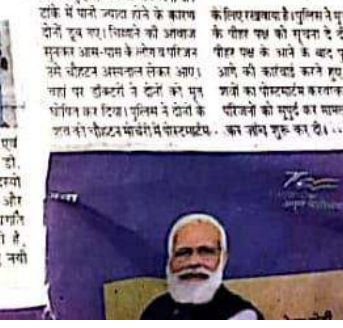 टांके में पानी ज्यादा होने के कारण
दोनों डूब गए। चिल्लाने की आवाज
सुनकर आस-पास के लोग व परिजन
उसे चौहटन अस्पताल लेकर आए।
वहां पर डॉक्टरों ने दोनों को मृत
घोषित कर दिया। पुलिस ने दोनों के
शव को चौहटन मोर्चरी में पोस्टमार्टम
के लिए रखवाया है। पुलिस ने मृ
के पीहर पक्ष को सूचना दे दी
पीहर पक्ष के आने के बाद पु
आगे की कार्रवाई करते हुए
शवों का पोस्टमार्टम करवाक
परिजनों को सुपुर्द कर मामल
कर जांच शुरू कर दी।
एवं
डी.
और
है,
नयी